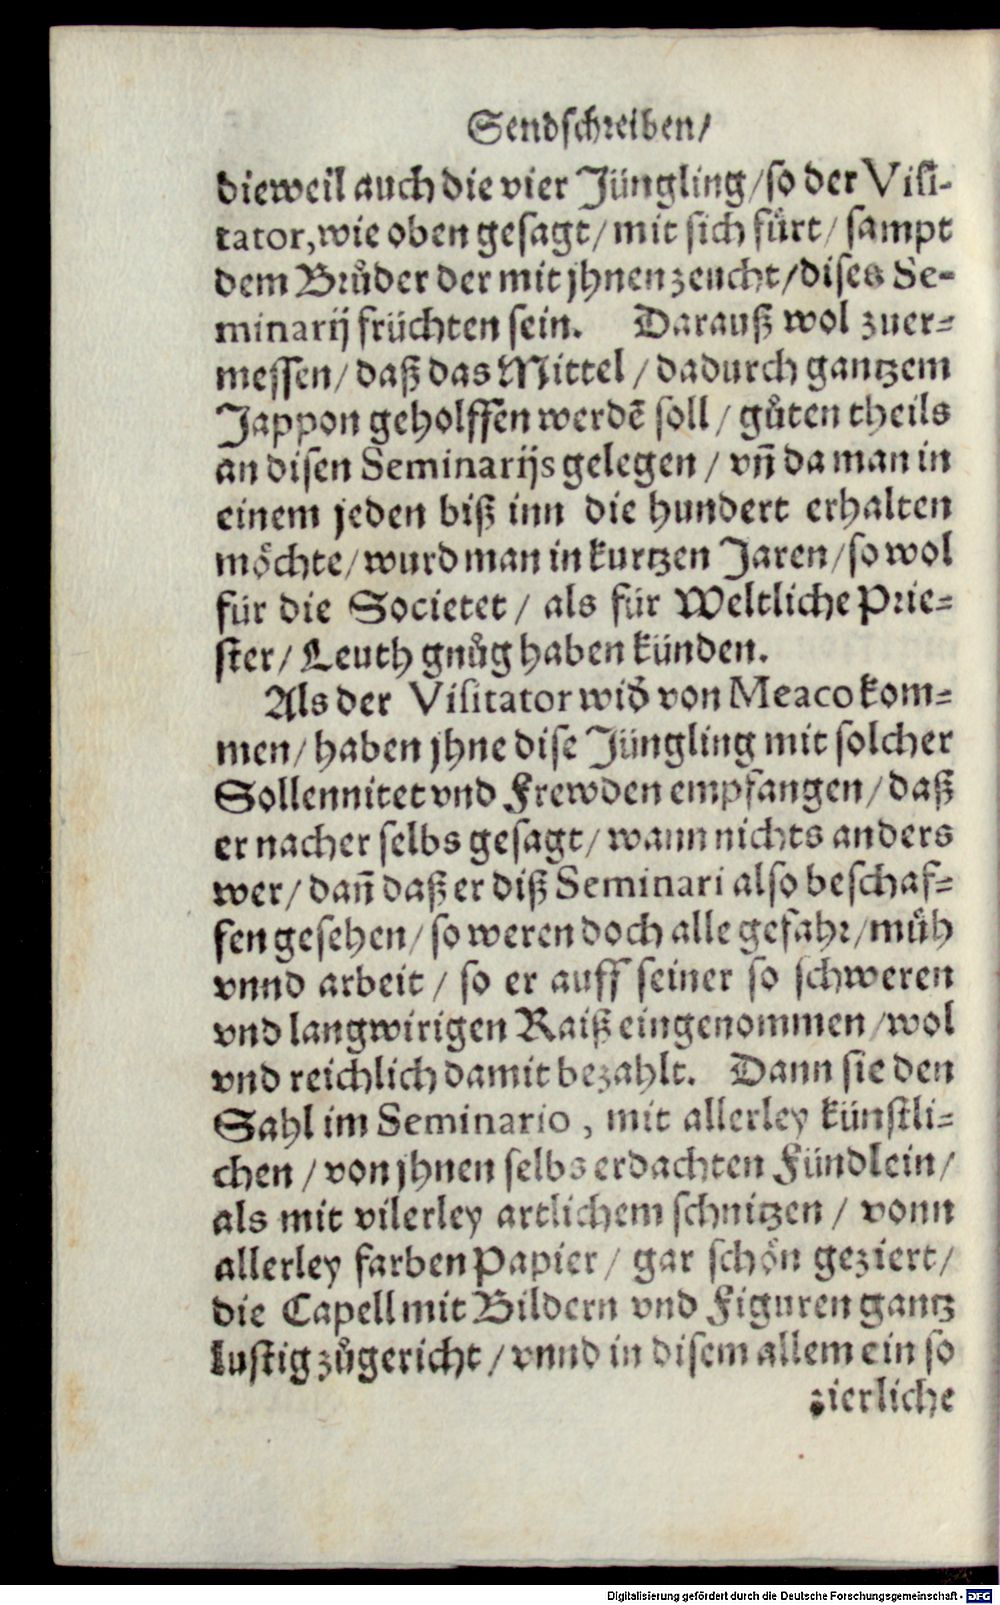 Sendschreiben/
dieweil auch die vier Jüngling/so der Visi-
tator,wie oben gesagt/mit sich fürt/sampt
dem Brůder der mit jhnen zeucht/dises Se-
minarij früchten sein. Darauß wol zuer-
messen/daß das Mittel/dadurch gantzem
Jappon geholffen werdē soll/gůten theils
an disen Seminarijs gelegen/vn̄ da man in
einem jeden biß inn die hundert erhalten
möchte/wurd man in kurtzen Jaren/so wol
für die Societet/als für Weltliche Prie-
ster/Leuth gnůg haben künden.
Als der Visitator wid̄ von Meaco kom-
men/haben jhne dise Jüngling mit solcher
Sollennitet vnd Frewden empfangen/daß
er nacher selbs gesagt/wann nichts anders
wer/dan̄ daß er diß Seminari also beschaf-
fen gesehen/so weren doch alle gefahr/müh
vnnd arbeit/so er auff seiner so schweren
vnd langwirigen Raiß eingenommen/wol
vnd reichlich damit bezahlt. Dann sie den
Sahl im Seminario, mit allerley künstli-
chen/von jhnen selbs erdachten Fündlein/
als mit vilerley artlichem schnitzen/vonn
allerley farben Papier/gar schön geziert/
die Capell mit Bildern vnd Figuren gantz
lustig zůgericht/vnnd in disem allem ein so
zierliche
Digitalisierung gefördert durch die Deutsche Forschungsgemeinschaft - DFG